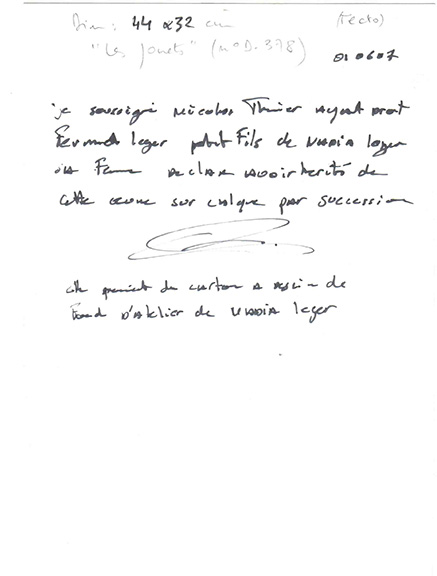 Dim: 44 x 32 cm (recto)
"Les jouets" (n° D. 378)
010607
je soussigné Nicolas Thinier Ayant droit
Fernand Leger petit Fils de NADIA leger
sa Femme declare avoir herité de
cette oeuvre sur calque par succession
elle provient du carton A dessin de
Fond D'Atelier de NADIA leger